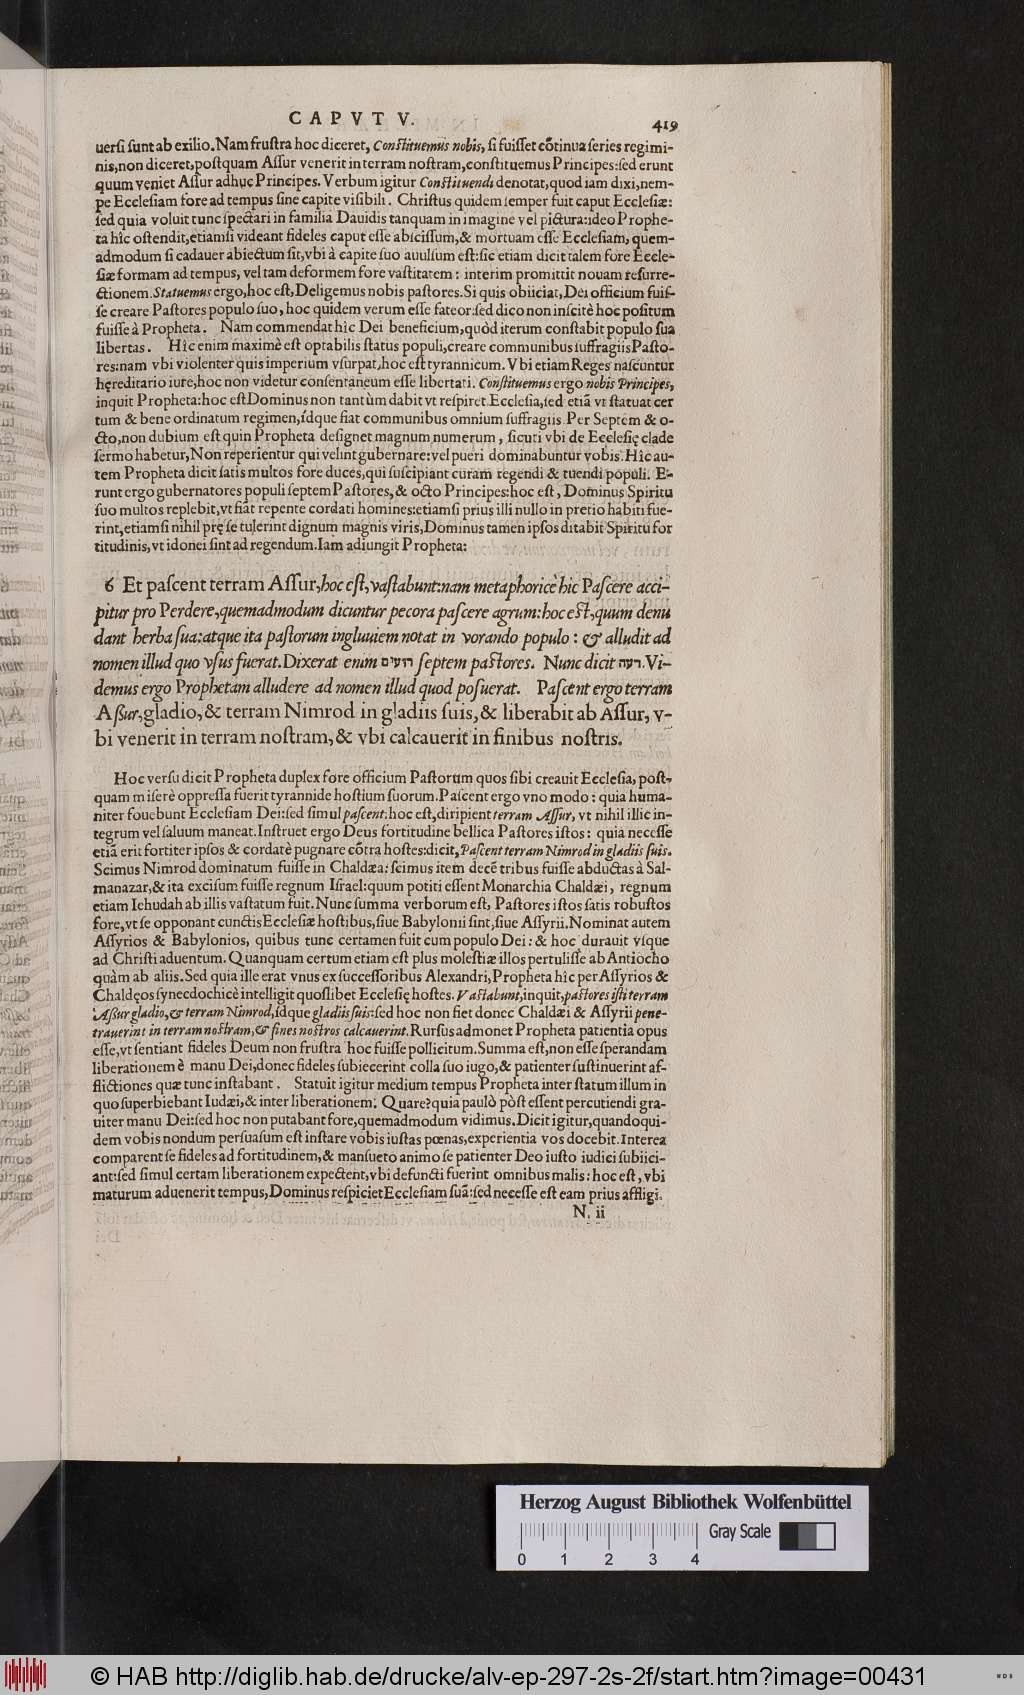 CAPVT V. 419
uersi sunt ab exilio. Nam frustra hoc diceret, Constituemus nobis, si fuisset cõtinua series regimi-
nis, non diceret, postquam Assur venerit in terram nostram, constituemus Principes: sed erunt
quum veniet Assur adhuc Principes. Verbum igitur Constituendi denotat, quod iam dixi, nem-
pe Ecclesiam fore ad tempus sine capite visibili. Christus quidem semper fuit caput Ecclesiæ:
sed quia voluit tunc spectari in familia Dauidis tanquam in imagine vel pictura: ideo Prophe-
ta hîc ostendit, etiamsi videant fideles caput esse abscissum, & mortuam esse Ecclesiam, quem-
admodum si cadauer abiectum sit, vbi à capite suo auulsum est: sic etiam dicit talem fore Eccle-
siæ formam ad tempus, vel tam deformem fore vastitatem: interim promittit nouam resurre-
ctionem. Statuemus ergo, hoc est, Deligemus nobis pastores. Si quis obiiciat, Dei officium fuis-
se creare Pastores populo suo, hoc quidem verum esse fateor: sed dico non inscitè hoc positum
fuisse à Propheta. Nam commendat hîc Dei beneficium, quòd iterum constabit populo sua
libertas. Hîc enim maximè est optabilis status populi, creare communibus suffragiis Pasto-
res: nam vbi violenter quis imperium vsurpat, hoc est tyrannicum. Vbi etiam Reges nascuntur
hęreditario iure, hoc non videtur consentaneum esse libertati. Constituemus ergo nobis Principes,
inquit Propheta: hoc est Dominus non tantùm dabit vt respiret Ecclesia, sed etiã vt statuat cer
tum & bene ordinatum regimen, ídque fiat communibus omnium suffragiis. Per Septem & o-
cto, non dubium est quin Propheta designet magnum numerum, sicuti vbi de Ecclesię clade
sermo habetur, Non reperientur qui velint gubernare: vel pueri dominabuntur vobis. Hîc au-
tem Propheta dicit satis multos fore duces, qui suscipiant curam regendi & tuendi populi. E-
runt ergo gubernatores populi septem Pastores, & octo Principes: hoc est, Dominus Spiritu
suo multos replebit, vt fiãt repente cordati homines: etiamsi prius illi nullo in pretio habiti fue-
rint, etiamsi nihil pręse tulerint dignum magnis viris, Dominus tamen ipsos ditabit Spiritu for
titudinis, vt idonei sint ad regendum. Iam adiungit Propheta:
6 Et pascent terram Assur, hoc est, vastabunt: nam metaphoricè hîc Pascere acci-
pitur pro Perdere, quemadmodum dicuntur pecora pascere agrum: hoc est, quum denu
dant herba sua: atque ita pastorum ingluuiem notat in vorando populo: & alludit ad
nomen illud quo vsus fuerat. Dixerat enim רועים septem pastores. Nunc dicit רעה. Vi-
demus ergo Prophetam alludere ad nomen illud quod posuerat. Pascent ergo terram
Assur, gladio, & terram Nimrod in gladiis suis, & liberabit ab Assur, v-
bi venerit in terram nostram, & vbi calcauerit in finibus nostris.
Hoc versu dicit Propheta duplex fore officium Pastorum quos sibi creauit Ecclesia, post-
quam miserè oppressa fuerit tyrannide hostium suorum. Pascent ergo vno modo: quia huma-
niter fouebunt Ecclesiam Dei: sed simul pascent: hoc est, diripient terram Assur, vt nihil illic in-
tegrum vel saluum maneat. Instruet ergo Deus fortitudine bellica Pastores istos: quia necesse
etiã erit fortiter ipsos & cordatè pugnare cõtra hostes: dicit, Pascent terram Nimrod in gladiis suis.
Scimus Nimrod dominatum fuisse in Chaldæa: scimus item decẽ tribus fuisse abductas à Sal-
manazar, & ita excisum fuisse regnum Israel: quum potiti essent Monarchia Chaldæi, regnum
etiam Iehudah ab illis vastatum fuit. Nunc summa verborum est, Pastores istos satis robustos
fore, vt se opponant cunctis Ecclesiæ hostibus, siue Babylonii sint, siue Assyrii. Nominat autem
Assyrios & Babylonios, quibus tunc certamen fuit cum populo Dei: & hoc durauit vsque
ad Christi aduentum. Quanquam certum etiam est plus molestiæ illos pertulisse ab Antiocho
quàm ab aliis. Sed quia ille erat vnus ex successoribus Alexandri, Propheta hîc per Assyrios &
Chaldęos synecdochicè intelligit quoslibet Ecclesię hostes. Vastabunt, inquit, pastores isti terram
Assur gladio, & terram Nimrod, ídque gladiis suis: sed hoc non fiet donec Chaldæi & Assyrii pene-
trauerint in terram nostram, & fines nostros calcauerint. Rursus admonet Propheta patientia opus
esse, vt sentiant fideles Deum non frustra hoc fuisse pollicitum. Summa est, non esse sperandam
liberationem è manu Dei, donec fideles subiecerint colla suo iugo, & patienter sustinuerint af-
flictiones quæ tunc instabant. Statuit igitur medium tempus Propheta inter statum illum in
quo superbiebant Iudæi, & inter liberationem. Quare? quia paulò pòst essent percutiendi gra-
uiter manu Dei: sed hoc non putabant fore, quemadmodum vidimus. Dicit igitur, quandoqui-
dem vobis nondum persuasum est instare vobis iustas pœnas, experientia vos docebit. Interea
comparent se fideles ad fortitudinem, & mansueto animo se patienter Deo iusto iudici subiici-
ant: sed simul certam liberationem expectent, vbi defuncti fuerint omnibus malis: hoc est, vbi
maturum aduenerit tempus, Dominus respiciet Ecclesiam suã: sed necesse est eam prius affligi.
N. ii
Herzog August Bibliothek Wolfenbüttel
Gray Scale
0 1 2 3 4
© HAB http://diglib.hab.de/drucke/alv-ep-297-2s-2f/start.htm?image=00431